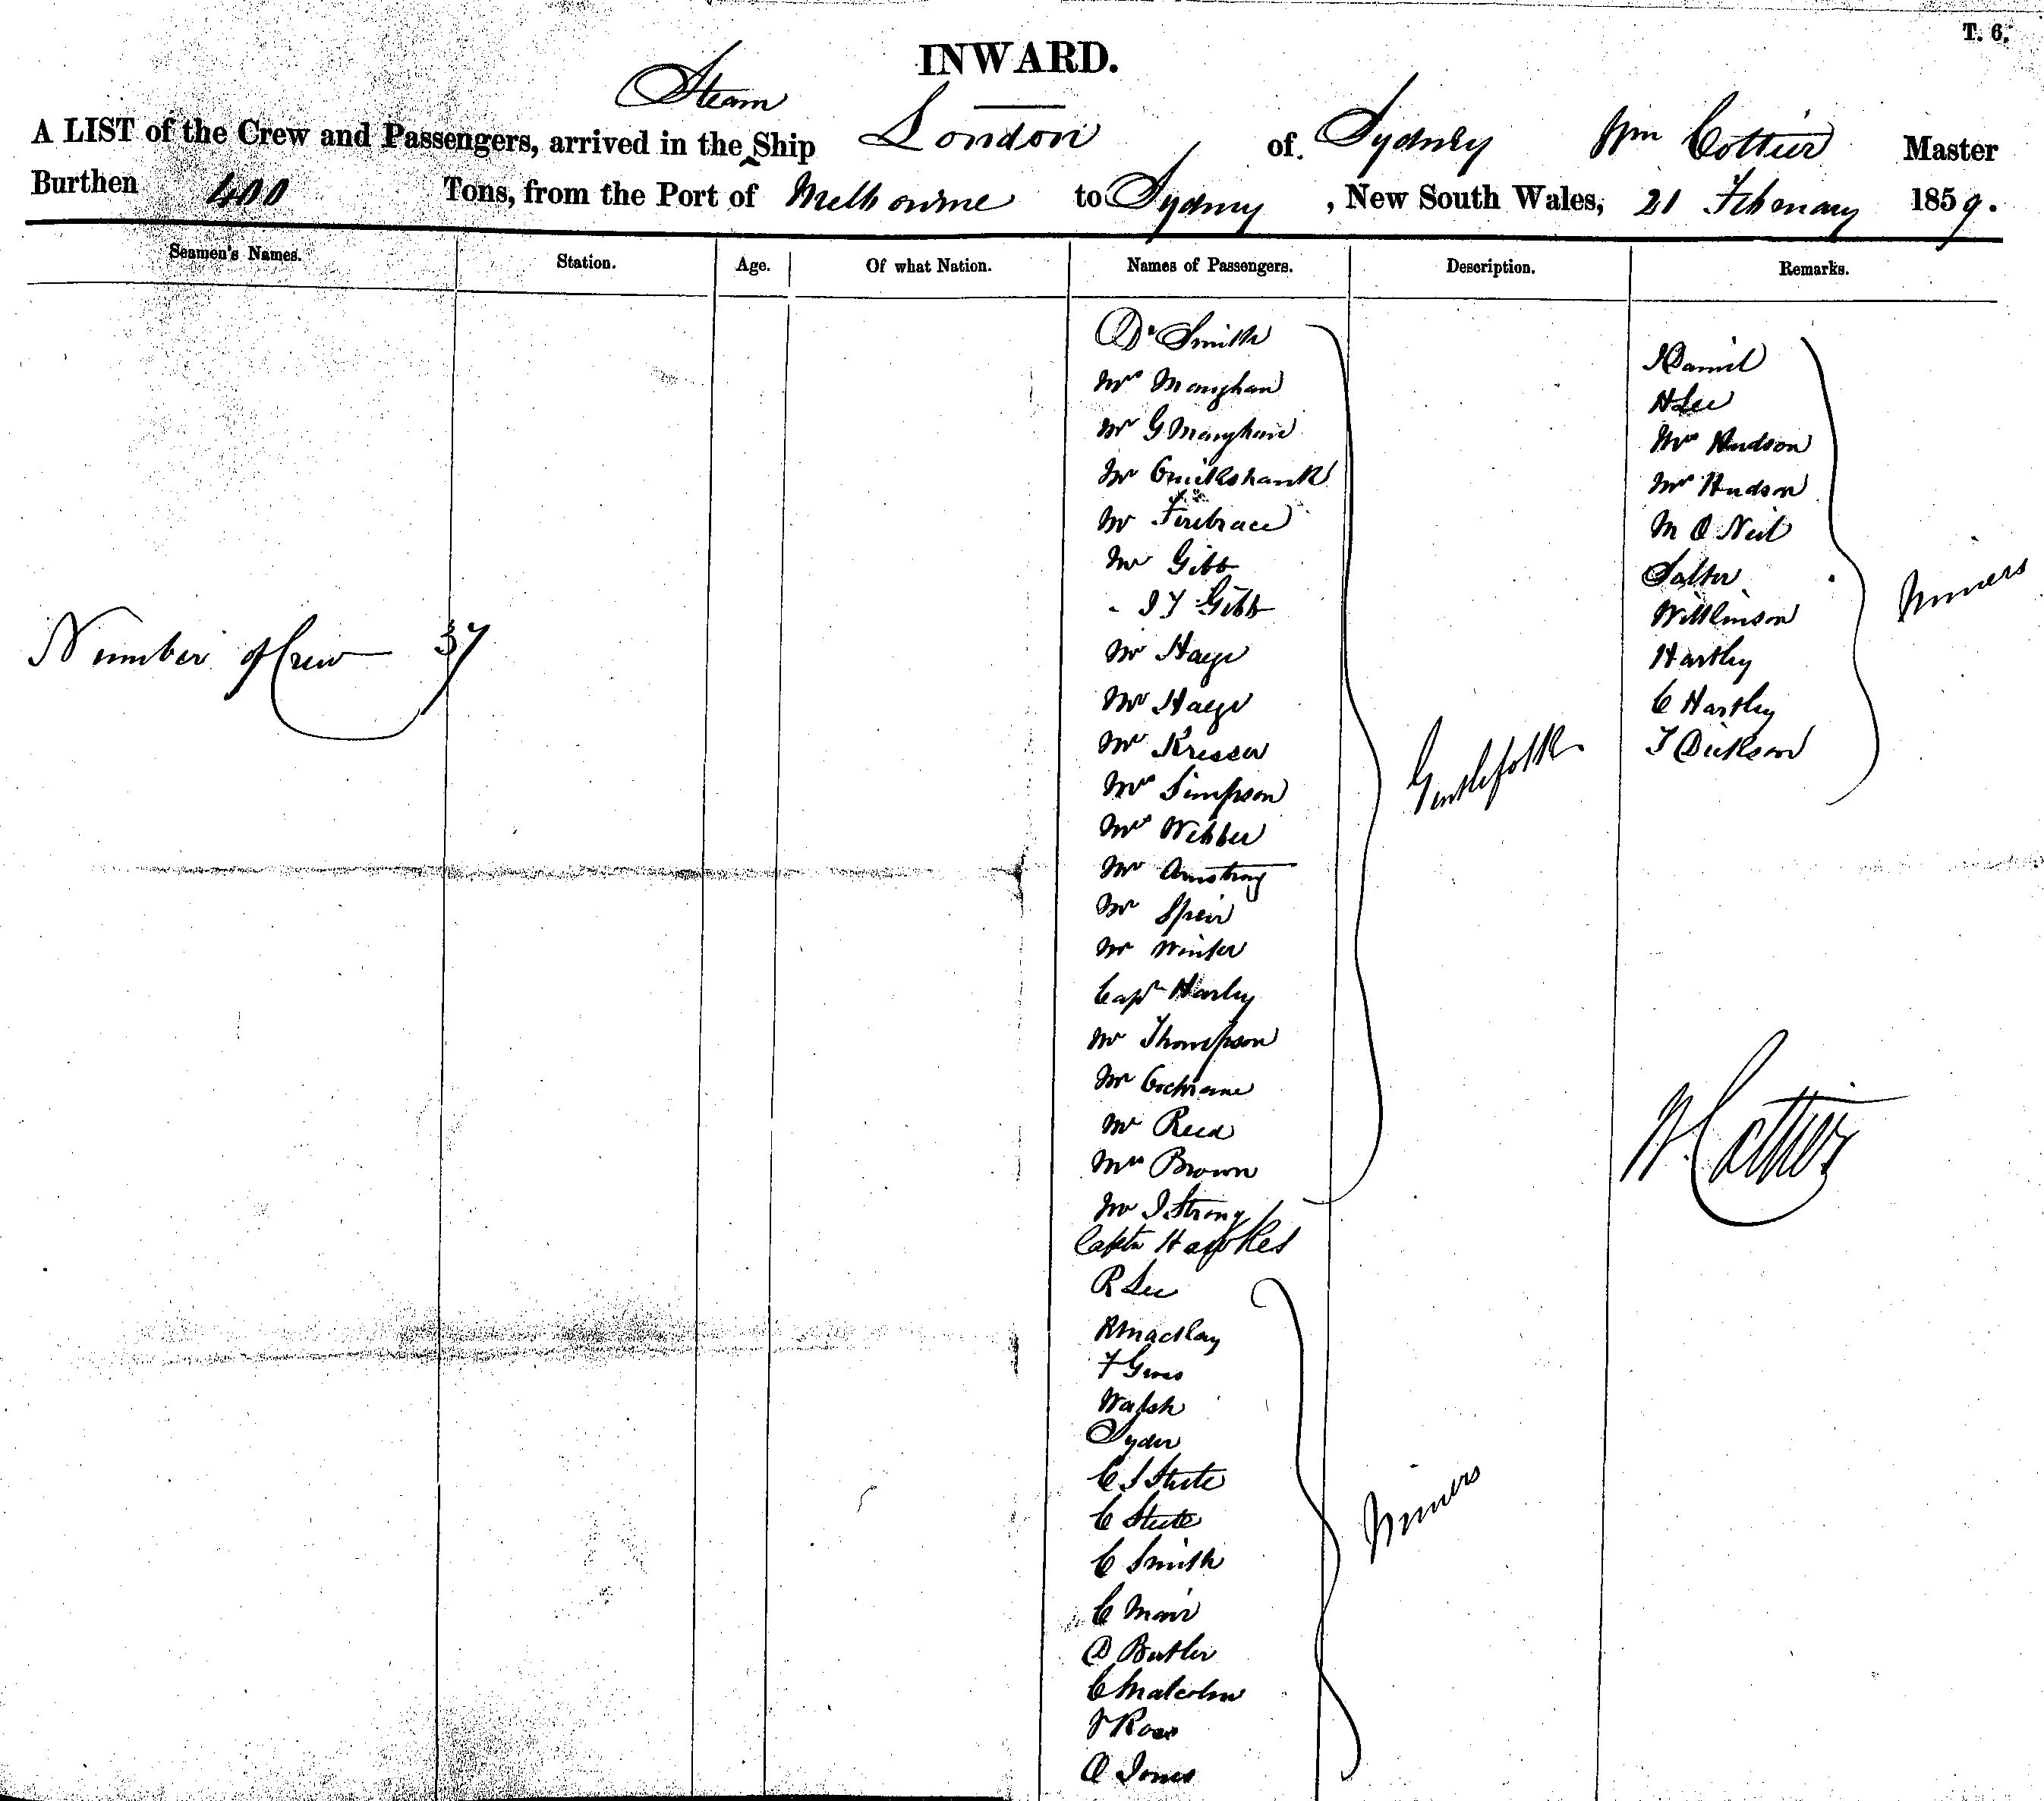 T. 6.
INWARD.
Steam
A LIST of the Crew and Passengers, arrived in the ‸ Ship London of Sydney Wm Cottier Master
Burthen 400 Tons, from the Port of Melbourne to Sydney, New South Wales, 21 February 1859.
Seamen's Names. Station. Age. Of what Nation. Names of Passengers. Description. Remarks.
Number of Crew 37
Dr Smith
Mrs Manghan
Mr G Manghan
Mr Cruikshank
Mr Firebrace
Mr Gibb
- J F Gibb
Mr Hage
Mrs Hage
Mr Kresser
Mrs Simpson
Mrs Webber
Mr Armstrong
Mr Speir
Mr Winter
Capt Harley
Mr Thompson
Mr Cochrane
Mr Reed
Mrs Brown
Mr J Strong
Captn Hawkes
Gentlefolk
R Lee
R Macklay
F Gross
Walsh
Syder
C J Stute
C Stute
C Smith
C Mair
D Butler
C Malcolm
J Ross
A Jones
Miners
J Daniel
H Lee
Mrs Hudson
Mr Hudson
M O Neil
Salter
Wilkinson
Hartley
C Hartley
T Dickson
Miners
W. Cottier